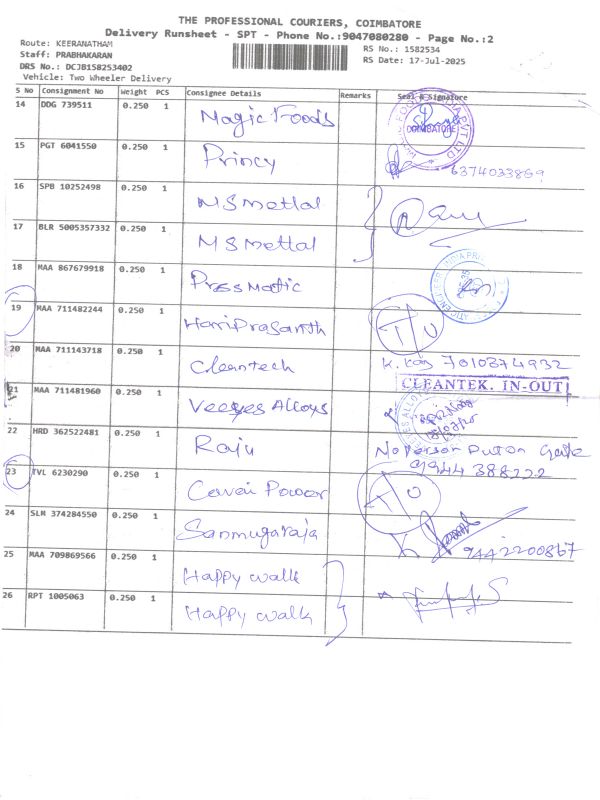 THE PROFESSIONAL COURIERS, COIMBATORE
Delivery Runsheet - SPT - Phone No.:9047080280 - Page No.:2
Route: KEERANATHAM RS No.: 1582534
Staff: PRABHAKARAN RS Date: 17-Jul-2025
DRS No.: DCJB1582253402
Vehicle: Two Wheeler Delivery
S No Consignment No Weight PCS Consignee Details Remarks Seal & Signature
14 DDG 739511 0.250 1 Magic Foods
COIMBATORE
15 PGT 6041550 0.250 1 Princy 6374033859
16 SPB 10252498 0.250 1 MS mettal
17 BLR 5005357332 0.250 1 MS mettal
18 MAA 867679918 0.250 1 Pressmatic
19 MAA 711482244 0.250 1 Hariprasanth T/O
20 MAA 711143718 0.250 1 Cleantech K. Raj 7010374932
CLEANTEK. IN-OUT
21 MAA 711481960 0.250 1 Veeyes Alloys
22 HRD 362522481 0.250 1 Raju No Person Duton Gate
9944 388222
23 TVL 6230290 0.250 1 Covai Power T/O
24 SLM 374284550 0.250 1 Sanmugaraja
9442200867
25 MAA 709869566 0.250 1 Happy walk
26 RPT 1005063 0.250 1 Happy walk